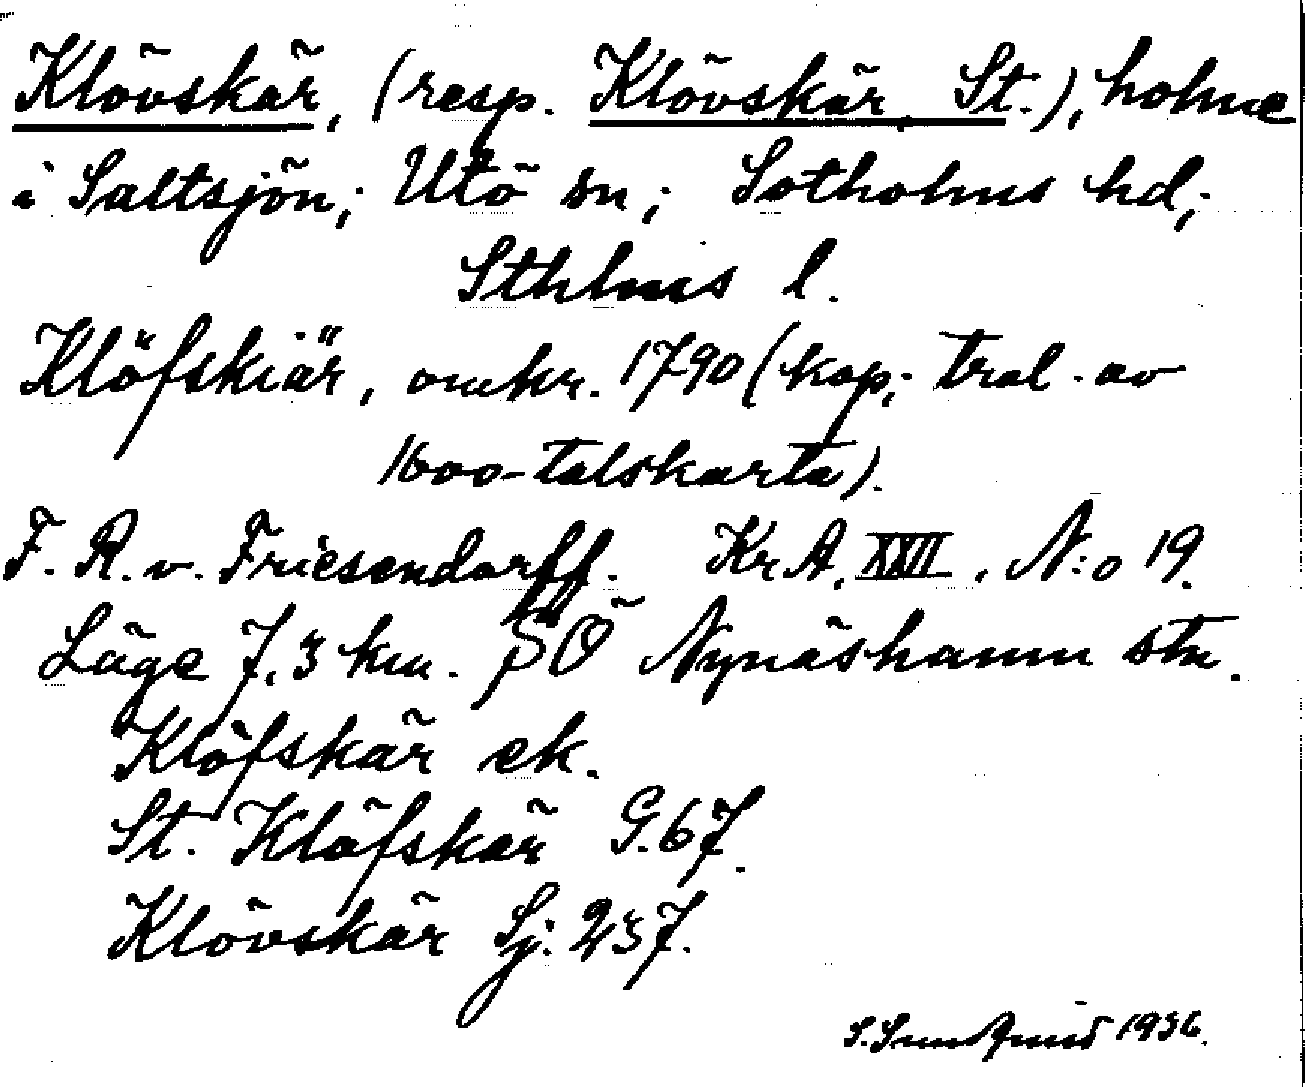 Klövskär, (resp. Klövskär, St.), holme
i Saltsjön; Utö sn; Sotholms hd;
Sthlms l.
Klöfskiär, omkr. 1790 (kop. trol. av
1600-talskarta).
F. R. v. Friesendorff. Kr.A. XXVII, N:o 19.
Läge 7,3 km. SÖ Nynäshamn stn.
Klöfskär ek.
St. Klöfskär G. 67.
Klövskär Sj. 237.
S. Sundquist 1936.